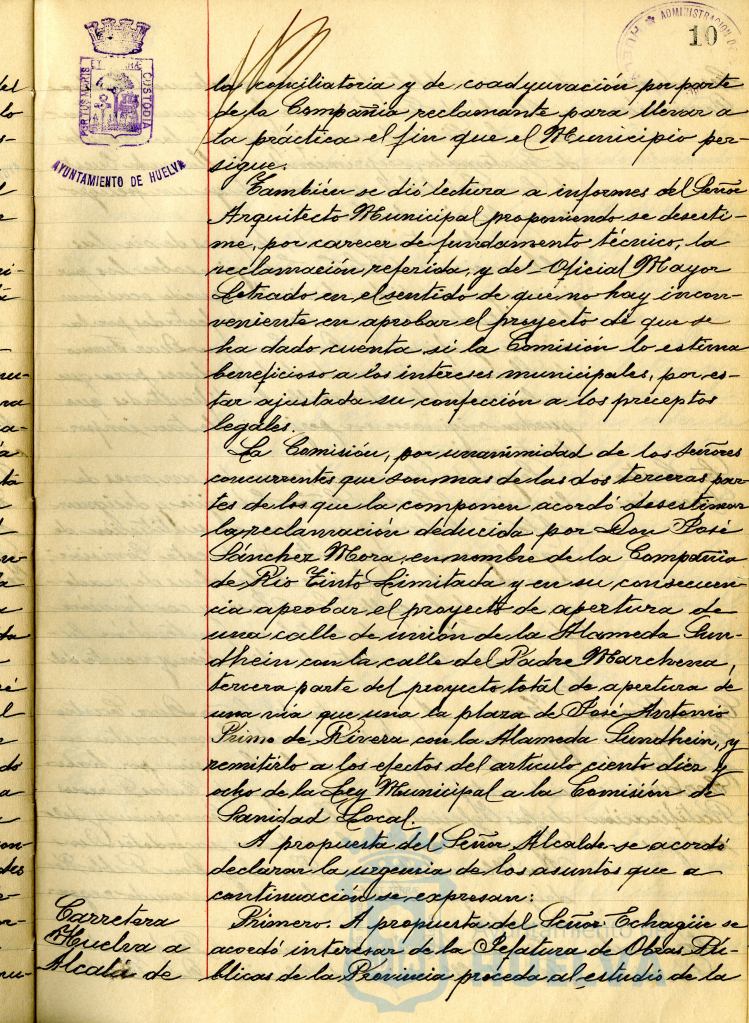 ADMINISTRACION DE
10
PORTUS MARIS ET TERRÆ CUSTODIA
AYUNTAMIENTO DE HUELVA
la conciliatoria y de coadyuvación por parte
de la Compañia reclamante para llevar a
la práctica el fin que el Municipio per-
sigue.
También se dió lectura a informes del Señor
Arquitecto Municipal proponiendo se desesti-
me, por carecer de fundamento técnico, la
reclamación referida, y del Oficial Mayor
Letrado en el sentido de que no hay incon-
veniente en aprobar el proyecto de que se
ha dado cuenta si la Comisión lo estima
beneficioso a los intereses municipales, por es-
tar ajustada su confección a los preceptos
legales.
La Comisión, por unanimidad de los Señores
concurrentes que son mas de las dos terceras par-
tes de los que la componen acordó desestimar
la reclamación deducida por Don José
Sánchez Mora en nombre de la Compañia
de Rio Tinto Limitada y en su consecuen-
cia aprobar el proyecto de apertura de
una calle de unión de la Alameda Sun-
dhein con la calle del Padre Marchena,
tercera parte del proyecto total de apertura de
una vía que una la plaza de José Antonio
Primo de Rivera con la Alameda Sundhein, y
remitirlo a los efectos del articulo ciento diez y
ocho de la Ley Municipal a la Comisión de
Sanidad Local.
A propuesta del Señor Alcalde se acordó
declarar la urgencia de los asuntos que a
continuación se expresan:
Carretera
Huelva a
Alcalá de
Primero. A propuesta del Señor Echagüe se
acordó interesar de la Jefatura de Obras Pú-
blicas de la Provincia proceda al estudio de la